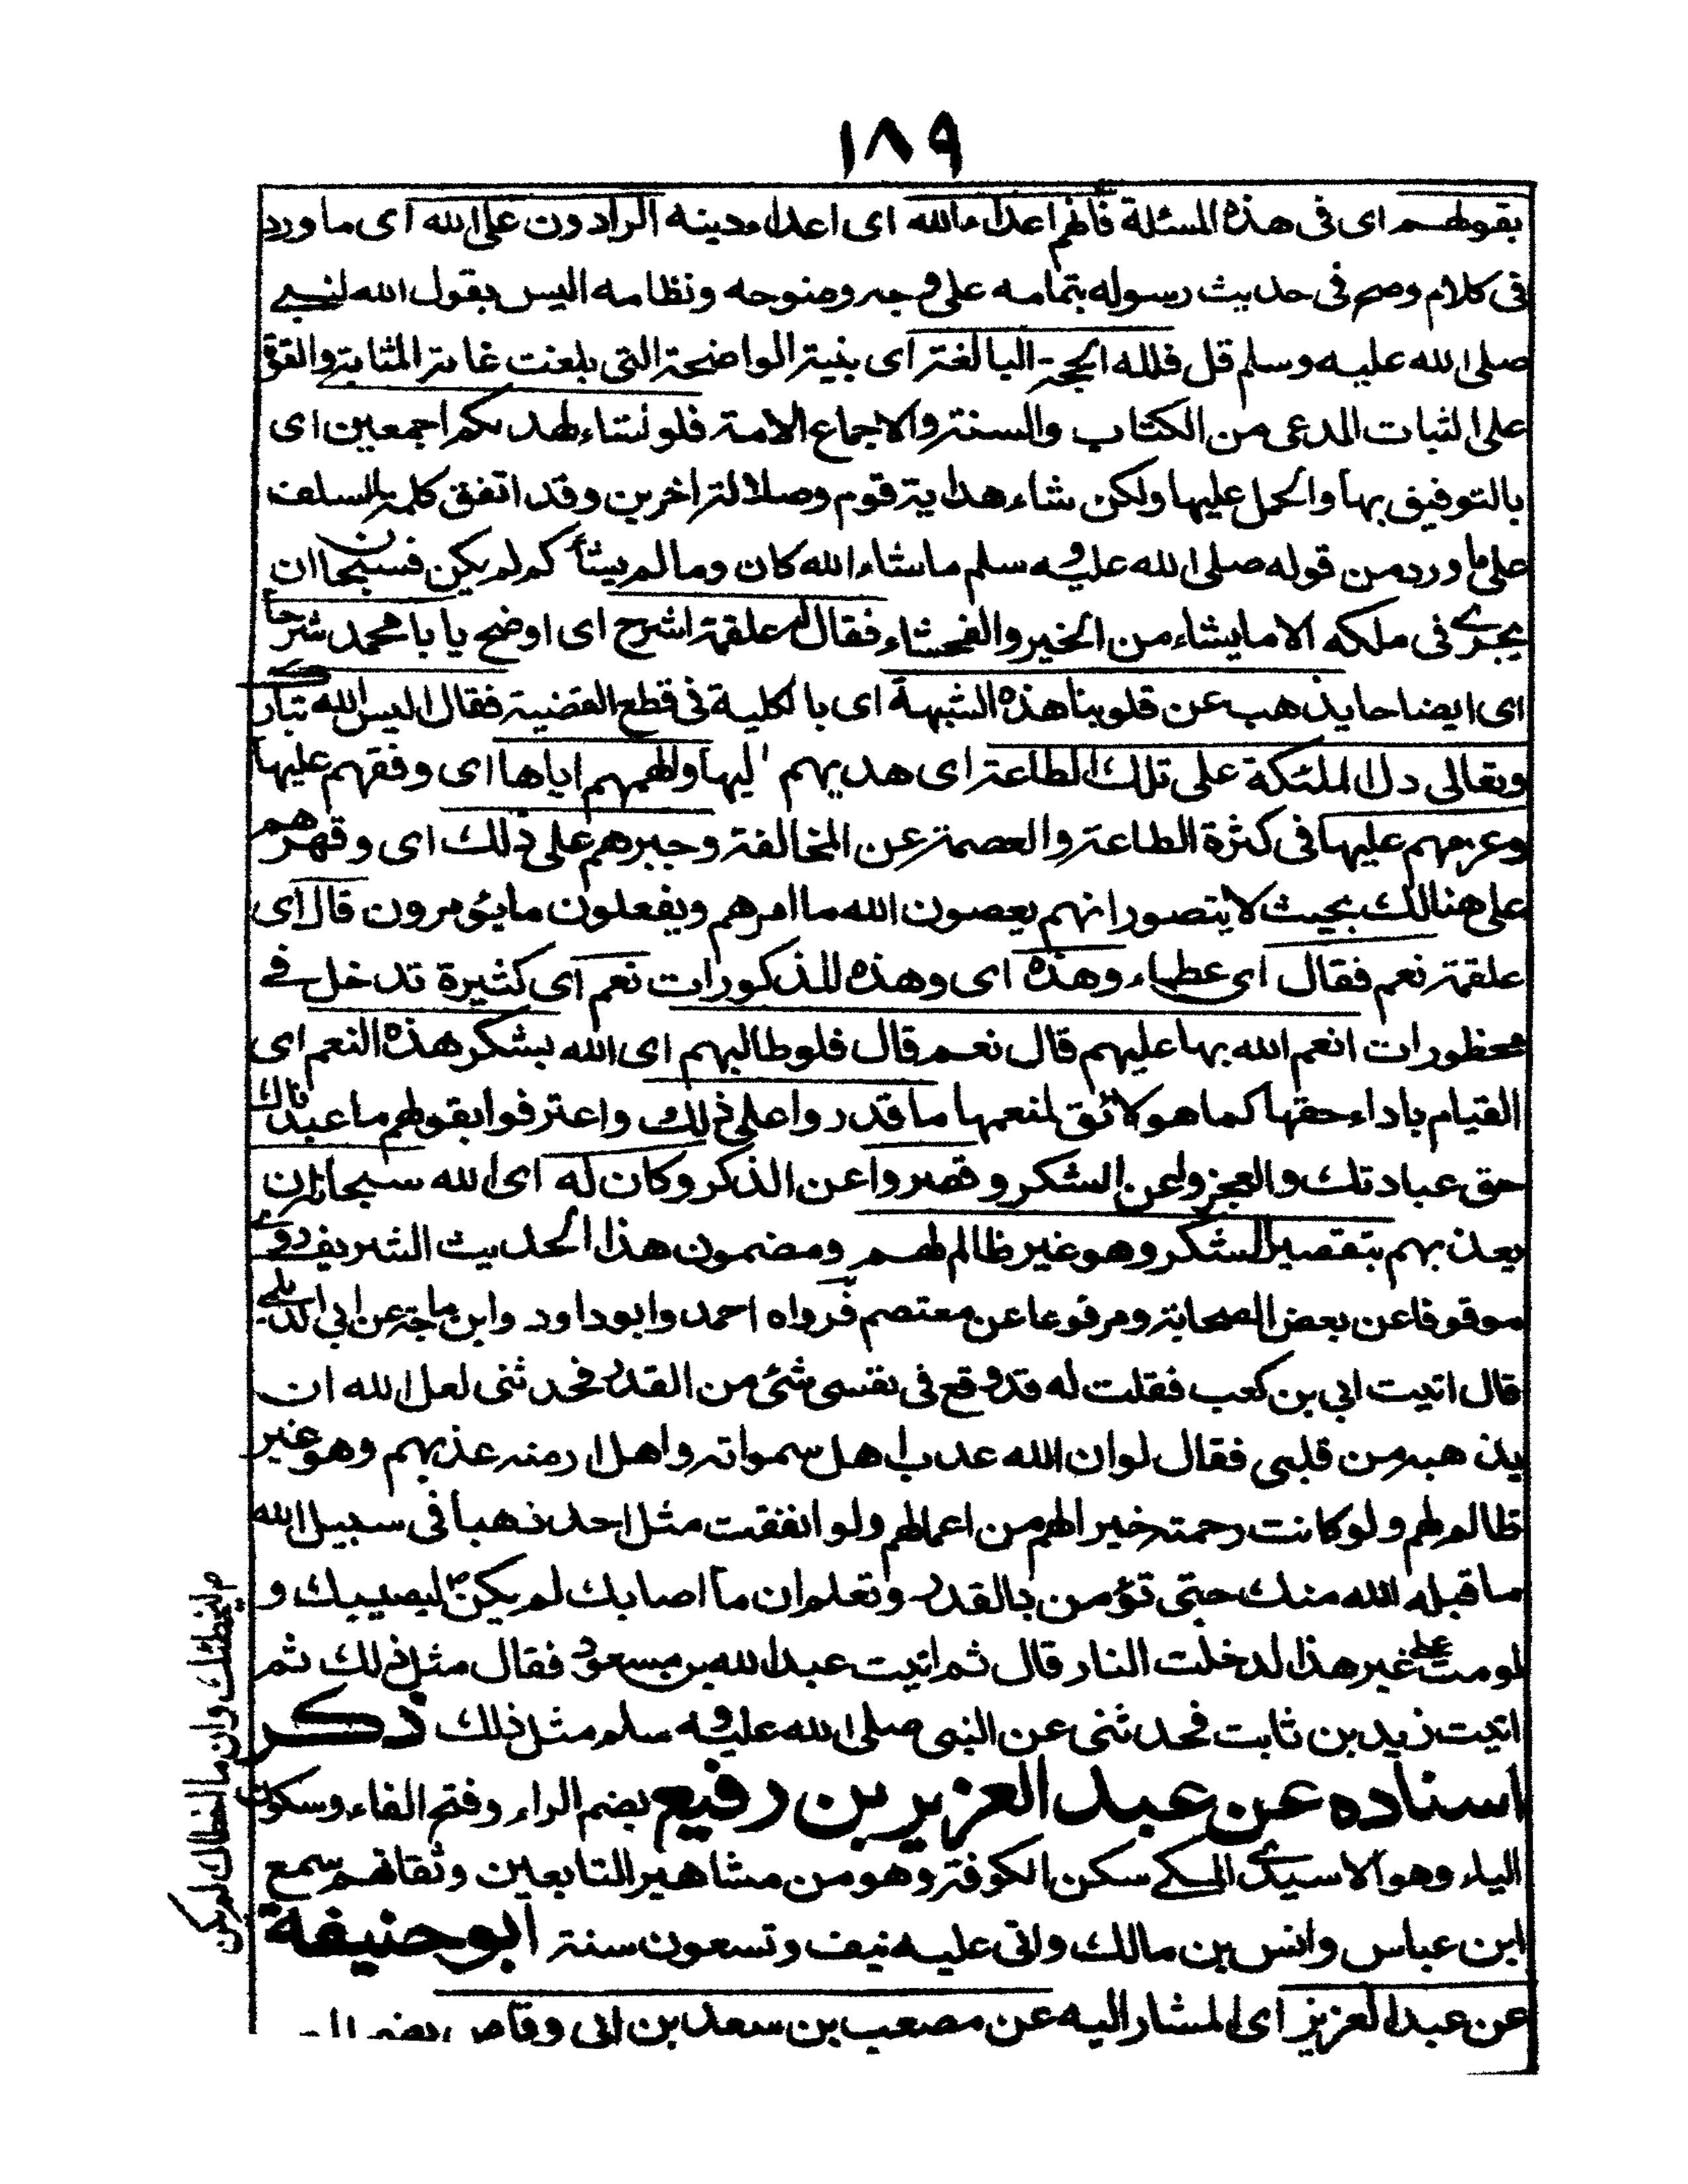 ١٨٩
بقولهم اى فى هذه المسئلة فانهم اعداء الله اى اعداء دينه الرادون على الله اى ما ورد
فى كلام وصح فى حديث رسوله بتمامه على وجه ومنوحه ونظامه اليس بقول الله لنبى
صلى الله عليه وسلم قل فلله الحجة البالغة اى بنية الواضحة التى بلغت غاية المثابة والقوة
على اثبات المدعى من الكتاب والسنة والاجماع الامة فلو شاء لهدىكم اجمعين اى
بالتوفيق بها والحمل عليها ولكن شاء هداية قوم وصلالة اخرين وقد اتفق كلمة السلف
على ما ورد من قوله صلى الله عليه وسلم ما شاء الله كان وما لم يشأ كم لم يكن فسبحان ان
يجرى فى ملكه الا ما يشاء من الخير والفحشاء فقال له علقمة اشرح اى اوضح يا با محمد شرحا
اى ايضاحا يذهب عن قلوبنا هذه الشبهة اى بالكلية فى قطع القضية فقال اليس الله تبارك
وتعالى دل الملئكة على تلك الطاعة اى هديهم اليها والهمهم اياها اى وفقهم عليها
وعزمهم عليها فى كثرة الطاعة والعصمة عن المخالفة وجبرهم على ذلك اى وقهرهم
على هنالك بحيث لا يتصور انهم يعصون الله ما امرهم ويفعلون ما يؤمرون قال اى
علقمة نعم فقال اى عطاء وهذه اى وهذه المذكورات نعم اى كثيرة تدخل فى
محظورات انعم الله بها عليهم قال نعم قال فلو طالبهم اى الله بشكر هذه النعم اى
القيام باداء حقها كما هو لائق لمنعمها ما قدروا على ذلك واعترفوا بقولهم ما عبدناك
حق عبادتك والعجزوا عن الشكر وقصروا عن الذكر وكان له اى الله سبحانه ان
يعذبهم بتقصير الشكر وهو غير ظالم لهم ومضمون هذا الحديث الشريف روى
موقوفا عن بعض الصحابة ومرفوعا عن معتصم فرواه احمد وابو داود وابن ماجة عن ابى الديلمى
قال اتيت ابى بن كعب فقلت له قد وقع فى نفسى شئ من القدر فحدثنى لعل الله ان
يذهبه من قلبى فقال لو ان الله عذب اهل سمواته واهل ارضه عذبهم وهو غير
ظالم لهم ولو كانت رحمته خيرا لهم من اعمالهم ولو انفقت مثل احد ذهبا فى سبيل الله
ما قبله الله منك حتى تؤمن بالقدر وتعلم ان ما اصابك لم يكن ليصيبك و
لو مت على غير هذا لدخلت النار قال ثم اتيت عبد الله بن مسعود فقال مثل ذلك ثم
اتيت زيد بن ثابت فحدثنى عن النبى صلى الله عليه وسلم مثل ذلك ذكر
اسناده عن عبد العزيز بن رفيع بضم الراء وفتح الفاء وسكون
الياء وهو الاسيدى المكى سكن الكوفة وهو من مشاهير التابعين وثقاتهم سمع
ابن عباس وانس بن مالك واتى عليه نيف وتسعون سنة ابو حنيفة
عن عبد العزيز اى المشار اليه عن مصعب بن سعد بن ابى وقاص بضم
م ليخطئك وان ما اخطاك لم يكن